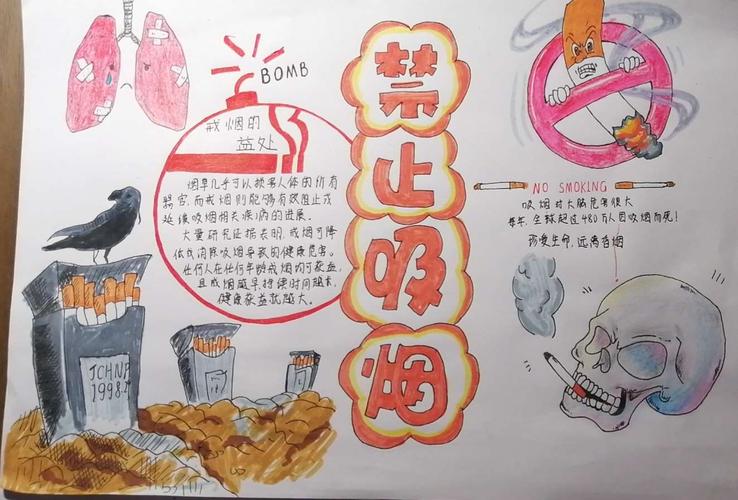 BOMB
戒烟的
益处
烟草几乎可以损害人体的所有
器官,而戒烟则能够有效阻止或
延缓吸烟相关疾病的进展。
大量研究证据表明,戒烟可降
低或消除吸烟导致的健康危害。
任何人在任何年龄戒烟均可获益,
且戒烟越早,持续时间越长,
健康获益就越大。
禁
止
吸
烟
NO SMOKING
吸烟对大脑危害很大
每年,全球超过480万人因吸烟而死!
珍爱生命,远离香烟
1998